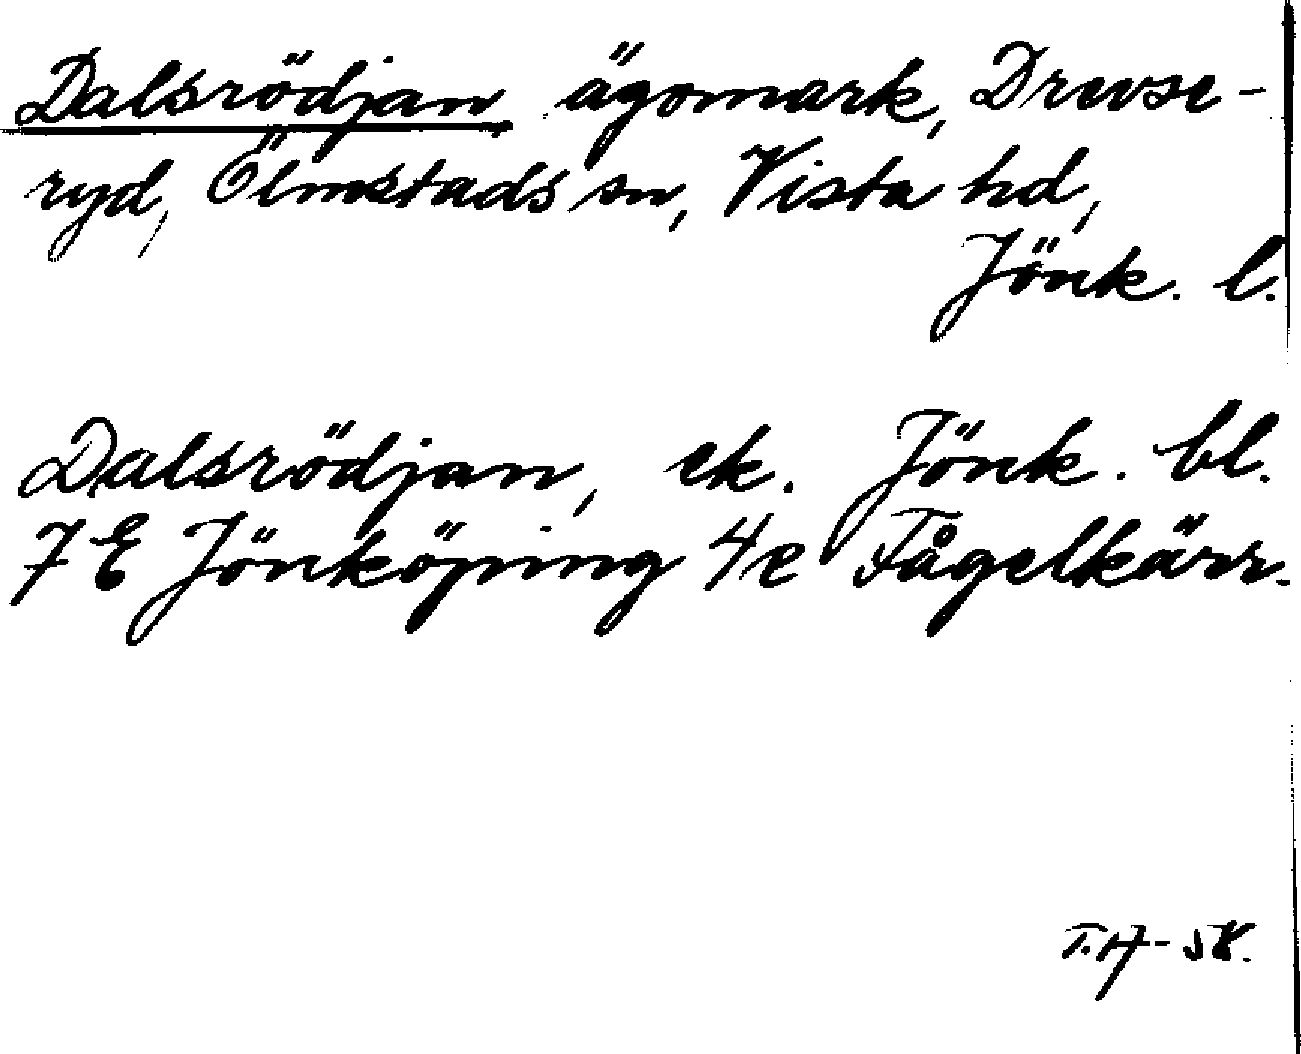 Dalsrödjan, ägomark, Drevse-
ryd, Ölmstads sn, Vista hd,
Jönk. l.
Dalsrödjan, ek. Jönk. bl.
7 E Jönköping 4e Fågelkärr.